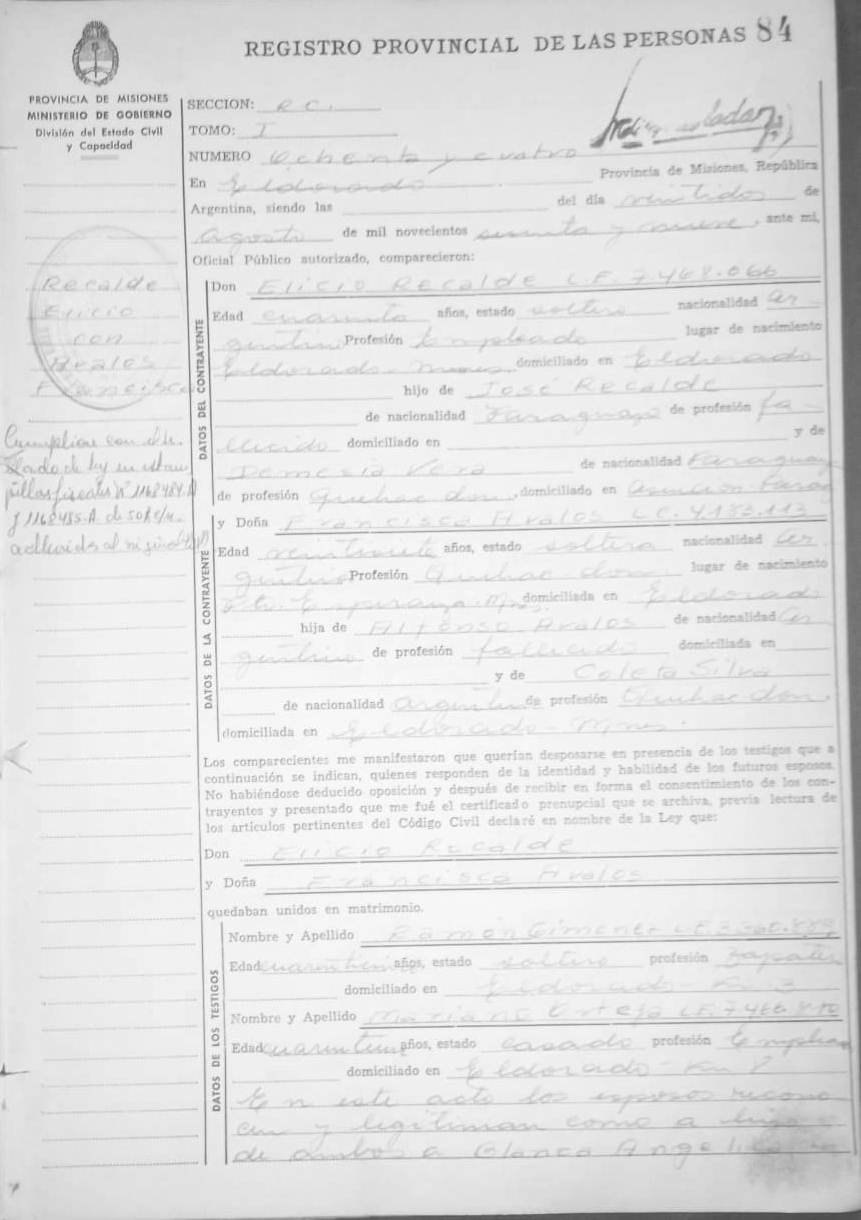 REGISTRO PROVINCIAL DE LAS PERSONAS 84
PROVINCIA DE MISIONES
MINISTERIO DE GOBIERNO
División del Estado Civil
y Capacidad
SECCION: R C.
TOMO: I
NUMERO Ochenta y cuatro
En Eldorado Provincia de Misiones, República
Argentina, siendo las del día veintidos de
Agosto de mil novecientos sesenta y nueve, ante mí,
Oficial Público autorizado, comparecieron:
Recalde
Elicio
con
Avalos
Francisca
Cumplian con
lado de ley
pillas fiscales Nº 1168484.A
y 1168485-A. de 50
DATOS DEL CONTRAYENTE
Don Elicio Recalde L.E. 7.468.066
Edad cuarenta años, estado soltero nacionalidad ar
gentino Profesión Empleado lugar de nacimiento
Eldorado - Mnes domiciliado en Eldorado
hijo de José Recalde
de nacionalidad Paraguayo de profesión fa
llecido domiciliado en y de
Demesia Vera de nacionalidad Paraguay
de profesión Quehac dom, domiciliado en Asuncion Parag
DATOS DE LA CONTRAYENTE
y Doña Francisca Avalos L.C. 4.183.113
Edad veintisiete años, estado soltera nacionalidad ar
gentina Profesión Quehac dom lugar de nacimiento
Pto. Esperanza. Mnes. domiciliada en Eldorado
hija de Alfonso Avalos de nacionalidad ar
gentino de profesión fallecido domiciliada en
y de Coleta Silva
de nacionalidad argentina de profesión Quehac dom.
domiciliada en Eldorado Mnes.
Los comparecientes me manifestaron que querían desposarse en presencia de los testigos que a
continuación se indican, quienes responden de la identidad y habilidad de los futuros esposos.
No habiéndose deducido oposición y después de recibir en forma el consentimiento de los con-
trayentes y presentado que me fué el certificado prenupcial que se archiva, previa lectura de
los artículos pertinentes del Código Civil declaré en nombre de la Ley que:
Don Elicio Recalde
y Doña Francisca Avalos
quedaban unidos en matrimonio.
DATOS DE LOS TESTIGOS
Nombre y Apellido Ramón Gimenez L.E.
Edad años, estado soltero profesión Zapatero
domiciliado en Eldorado - K 3
Nombre y Apellido Mariano Ortega L.E. 7.466.810
Edad años, estado casado profesión Emplea
domiciliado en Eldorado - Km
En este acto los esposos recono
cen y legitiman como a hija
de ambos a Blanca Angelica